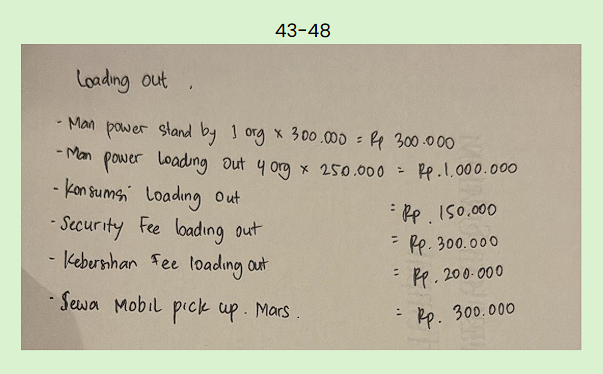 43-48
Loading out .
- Man power stand by 1 org x 300.000 = Rp 300.000
- Man power Loading Out 4 org x 250.000 = Rp.1.000.000
- Konsumsi Loading Out = Rp. 150.000
- Security Fee loading out = Rp. 300.000
- Kebersihan Fee loading out = Rp. 200.000
- Sewa Mobil pick up. Mars. = Rp. 300.000